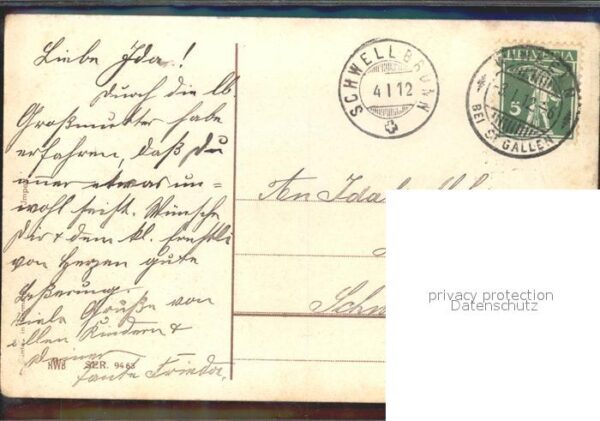 Liebe Ida!
Durch die lb
Großmutter habe
erfahren, daß Du
immer etwas un=
wohl seist. Wünsche
Dir & dem kl. Ernstli
von Herzen gute
Beßerung.
Viele Grüße von
allen Kindern &
Deiner
Tante Frieda.
RWB SER. 9463
SCHWELLBRUNN
4 I 12
HELVETIA
5
BEI ST. GALLEN
An Ida
Schw
privacy protection
Datenschutz